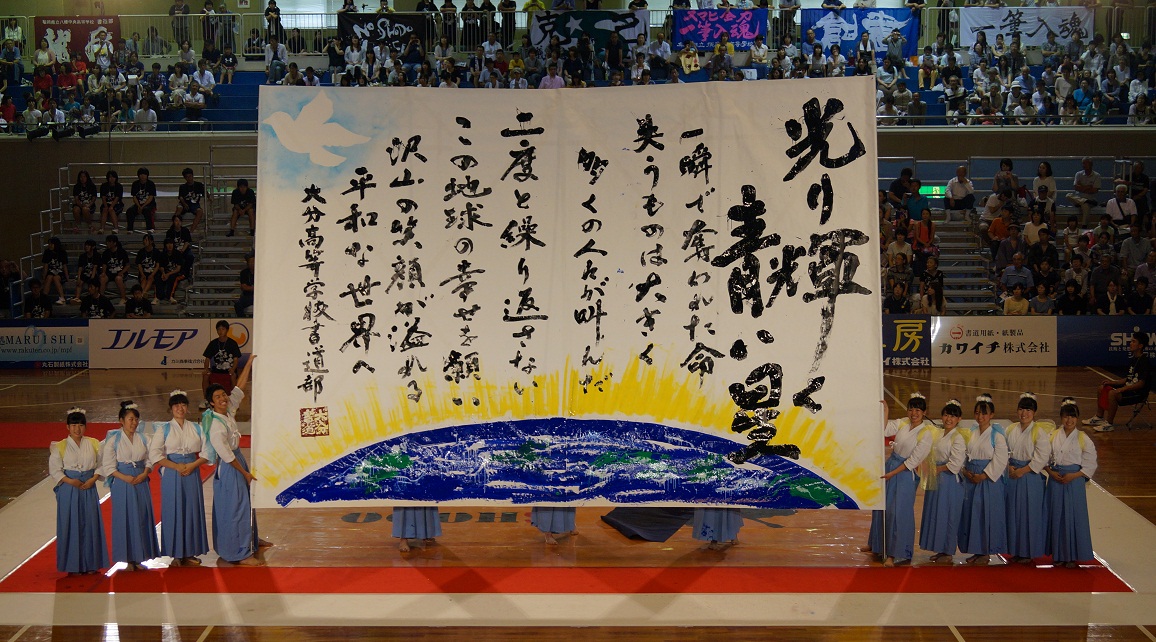 光り輝く
青い星
一瞬で奪われた命
失うものは大きく
多くの人々が叫んだ
二度と繰り返さない
この地球の幸せを願い
沢山の笑顔が溢れる
平和な世界へ
大分高等学校書道部
NO SHODO
一筆入魂
一筆入魂
MARUISHI
エルモア
房
書道用紙・紙製品
カワイチ株式会社